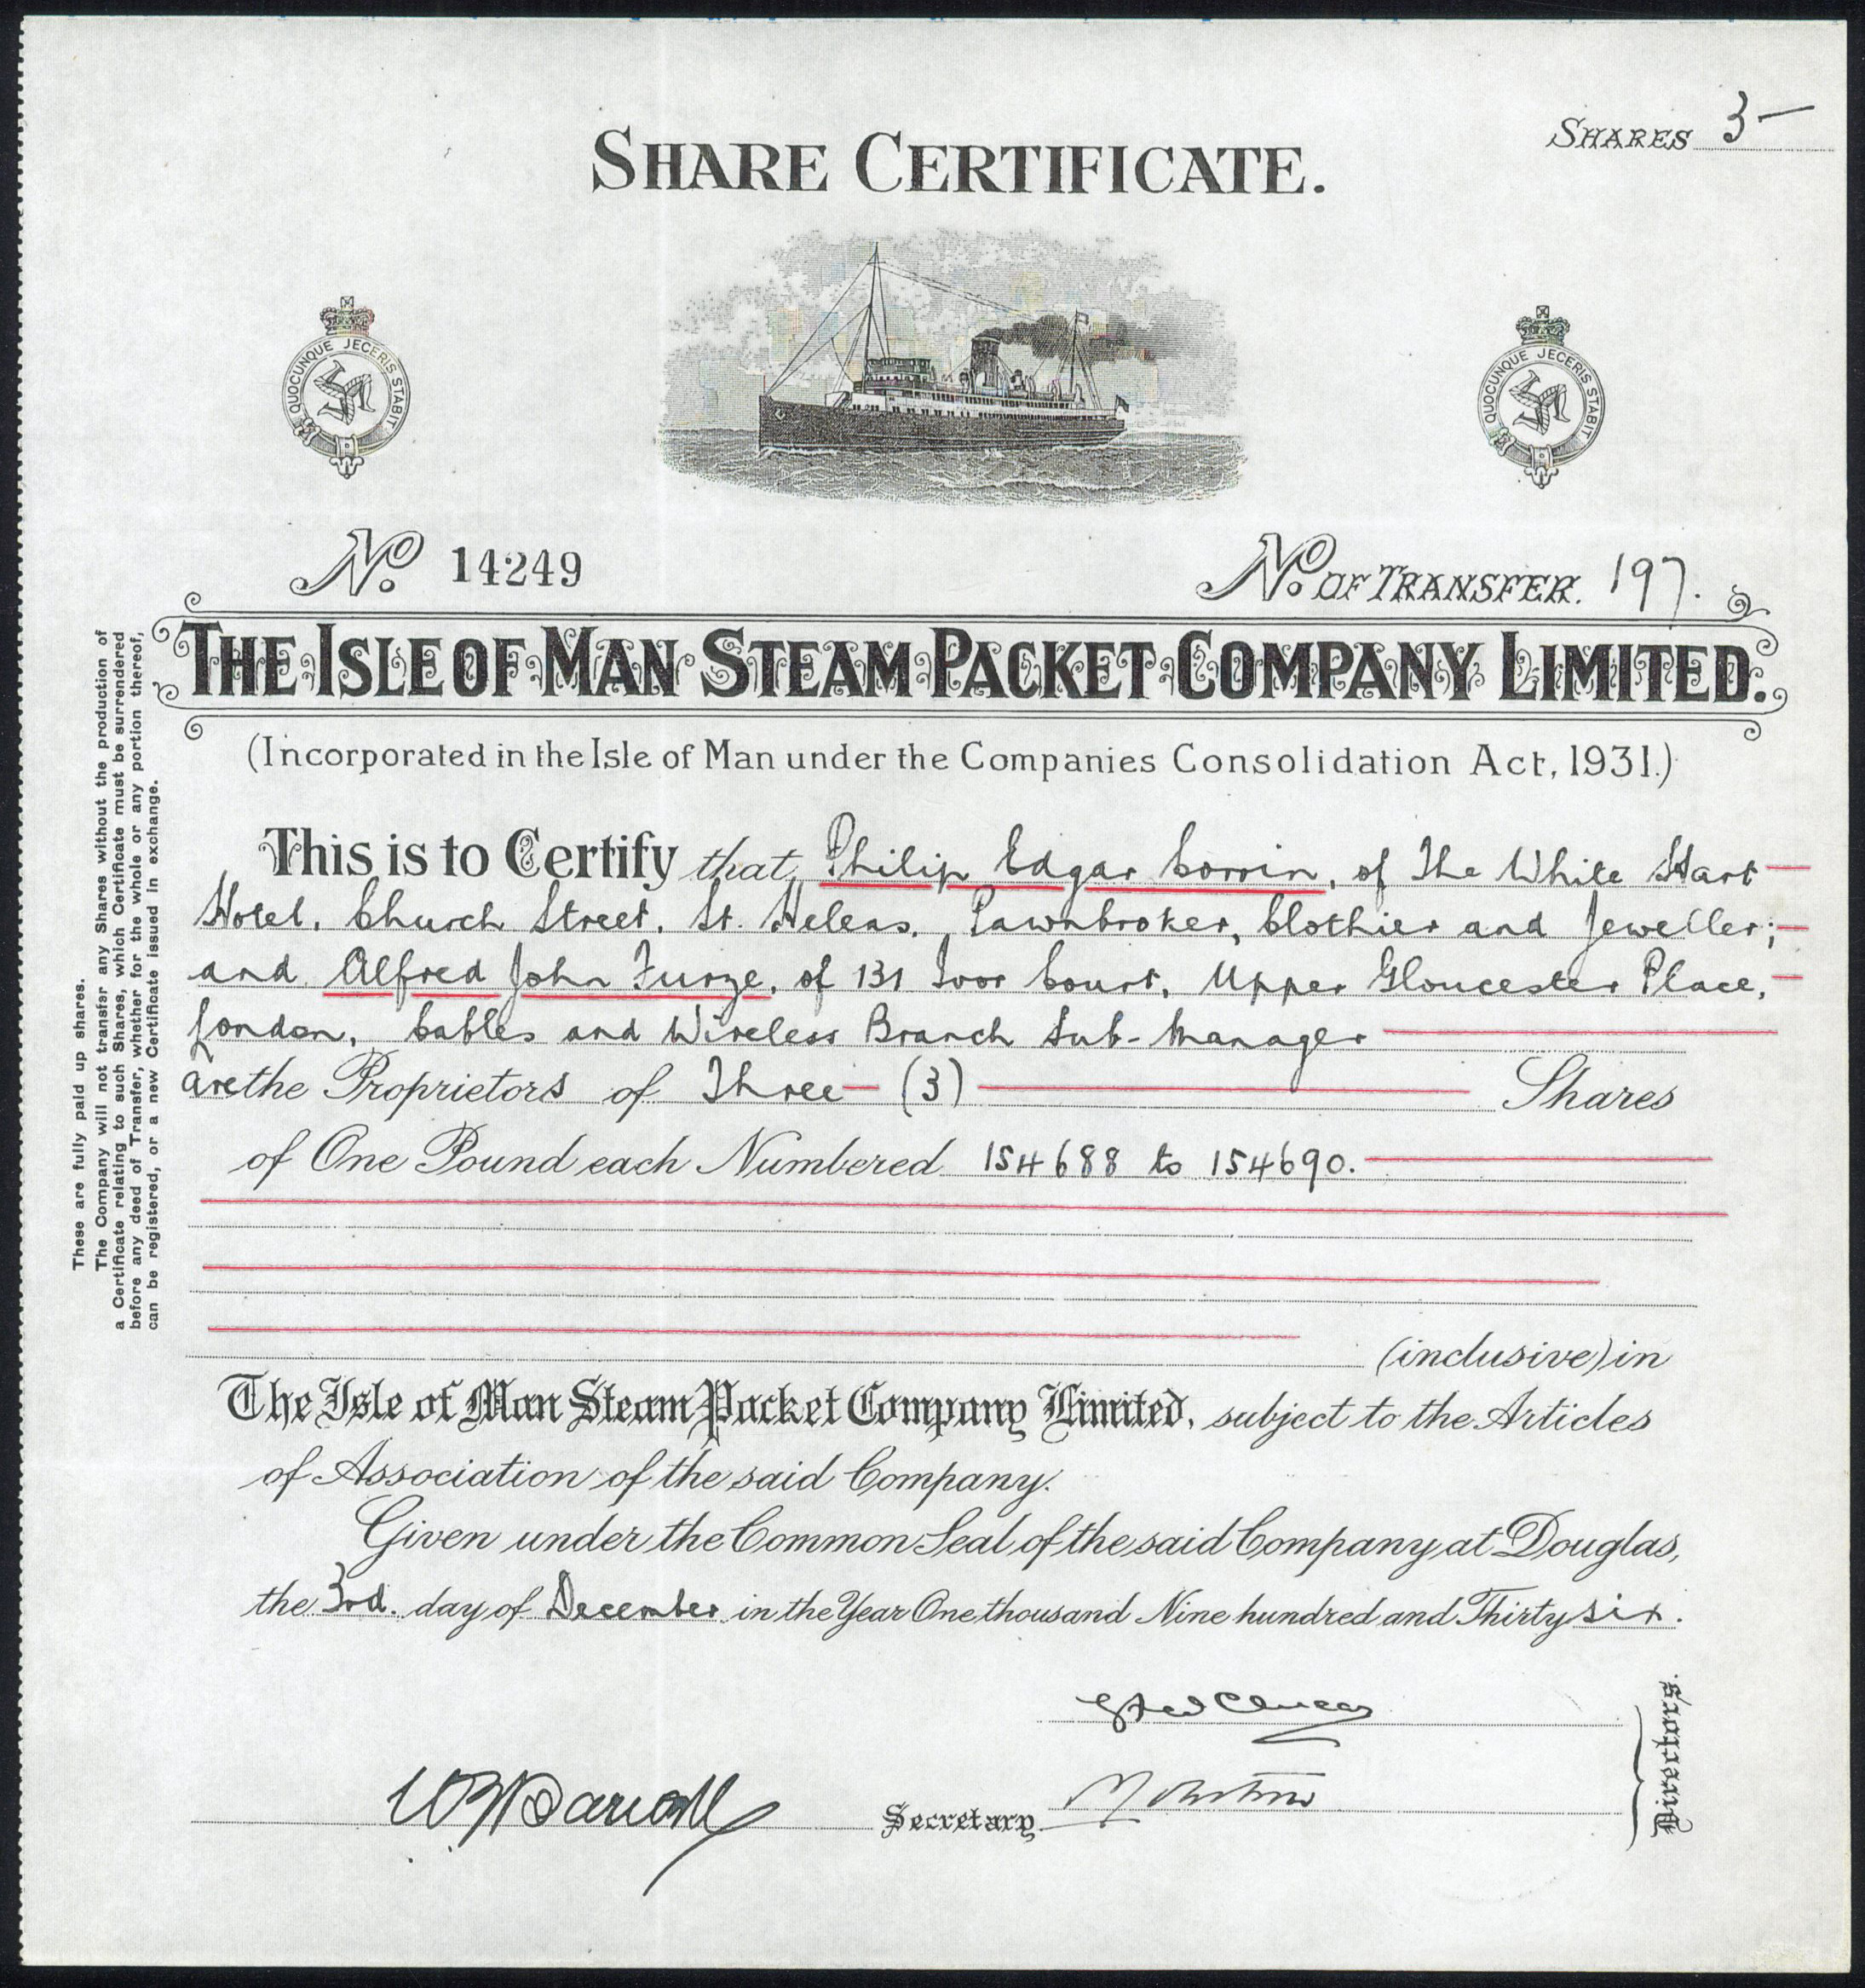 SHARES 3 —
SHARE CERTIFICATE.
QUOCUNQUE JECERIS STABIT
QUOCUNQUE JECERIS STABIT
No. 14249
No. OF TRANSFER. 197.
THE ISLE OF MAN STEAM PACKET COMPANY LIMITED.
(Incorporated in the Isle of Man under the Companies Consolidation Act, 1931.)
This is to Certify that Philip Edgar Corrin, of The White Hart —
Hotel, Church Street, St. Helens, Pawnbroker, Clothier and Jeweller; —
and Alfred John Furze, of 131 Ivor Court, Upper Gloucester Place, —
London, Cables and Wireless Branch Sub-Manager
are the Proprietors of Three — (3) Shares
of One Pound each Numbered 154688 to 154690.
(inclusive) in
The Isle of Man Steam Packet Company Limited, subject to the Articles
of Association of the said Company.
Given under the Common Seal of the said Company, at Douglas,
the 3rd. day of December in the Year One thousand Nine hundred and Thirty six.
Secretary.
Directors.
These are fully paid up shares.
The Company will not transfer any Shares without the production of
a Certificate relating to such Shares, which Certificate must be surrendered
before any deed of Transfer, whether for the whole or any portion thereof,
can be registered, or a new Certificate issued in exchange.